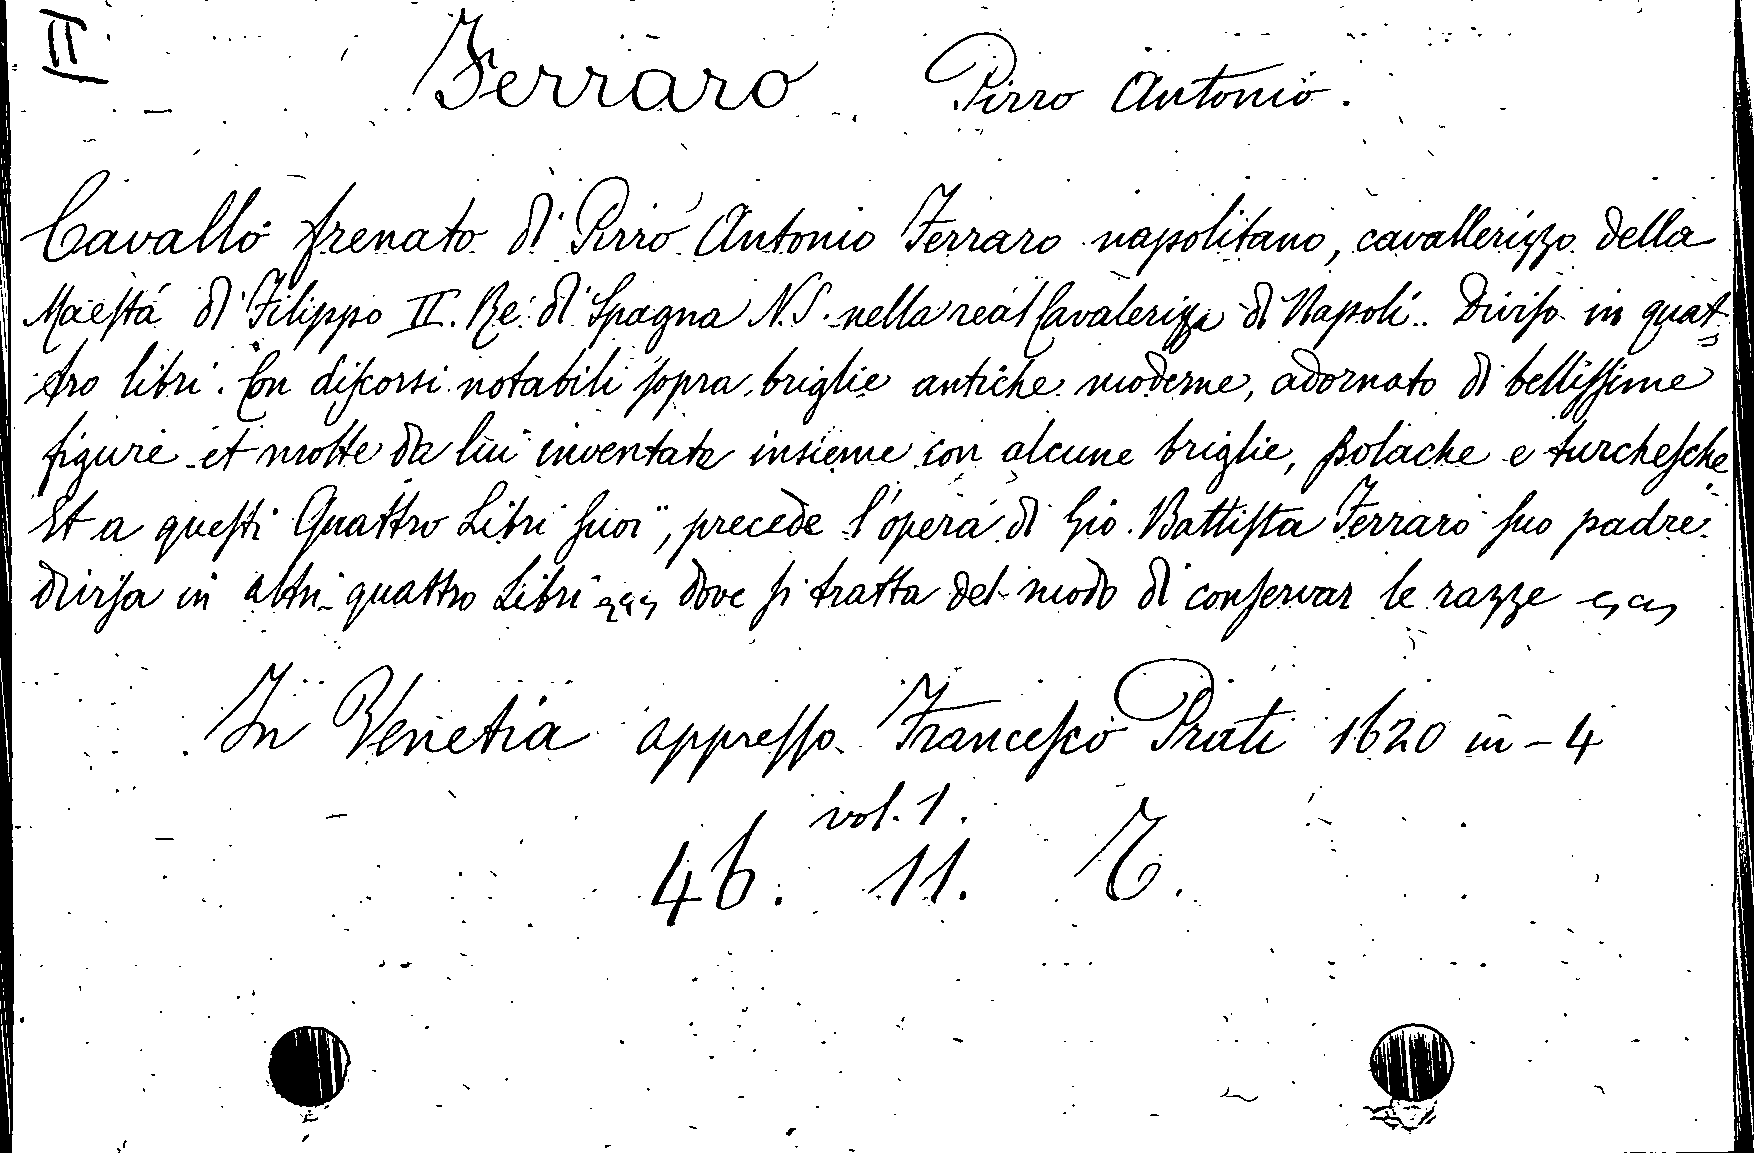 II
Ferraro Pirro Antonio.
Cavallo frenato di Pirro Antonio Ferraro napolitano, cavallerizzo della
Maeſtá di Filippo II. Re di Spagna N.S. nella real Cavalerizza di Napoli. Diviſo in quat=
tro libri. Con diſcorsi notabili ſopra briglie antiche moderne, adornato di belliſſime
figure et molte da lui inventate insieme con alcune briglie, polache e turcheſche
Et a queſti Quattro Libri ſuoi, precede l'opera di Gio. Battiſta Ferraro ſuo padre
diviſa in altri quattro Libri dove ſi tratta del modo di conſervar le razze
In Venetia appreſſo Franceſco Prati 1620 in-4
vol. 1.
46. 11.